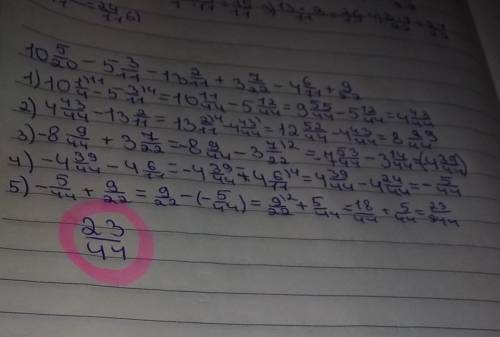 10 5/20 - 5 3/11 - 13 2/11 + 3 7/22 - 4 6/11 + 9/22
1) 10 1/4^11 - 5 3/11^4 = 10 11/44 - 5 12/44 = 9 55/44 - 5 12/44 = 4 43/44
2) 4 43/44 - 13 2/11 = 13 2/11^4 - 4 43/44 = 12 52/44 - 4 43/44 = 8 9/44
3) -8 9/44 + 3 7/22 = -8 9/44 - 3 7/22^2 = 7 53/44 - 3 14/44 = (4 39/44)
4) -4 39/44 - 4 6/11 = -4 39/44 + 4 6/11^4 = 4 39/44 - 4 24/44 = -5/44
5) -5/44 + 9/22 = 9/22 - (-5/44) = 9/22^2 + 5/44 = 18/44 + 5/44 = 23/44
23/44